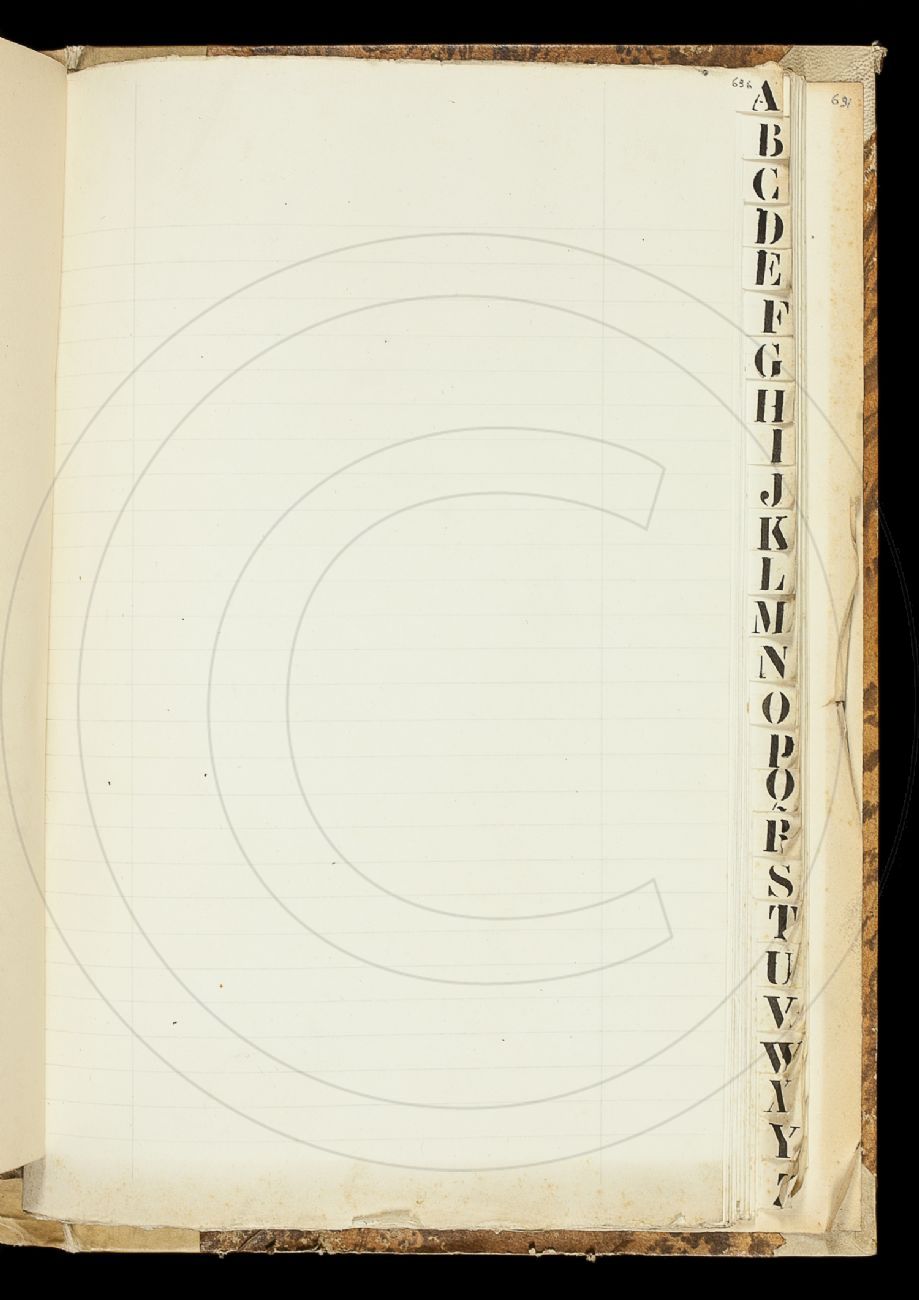 A
B
C
D
E
F
G
H
I
J
K
L
M
N
O
P
Q
R
S
T
U
V
W
X
Y
Z